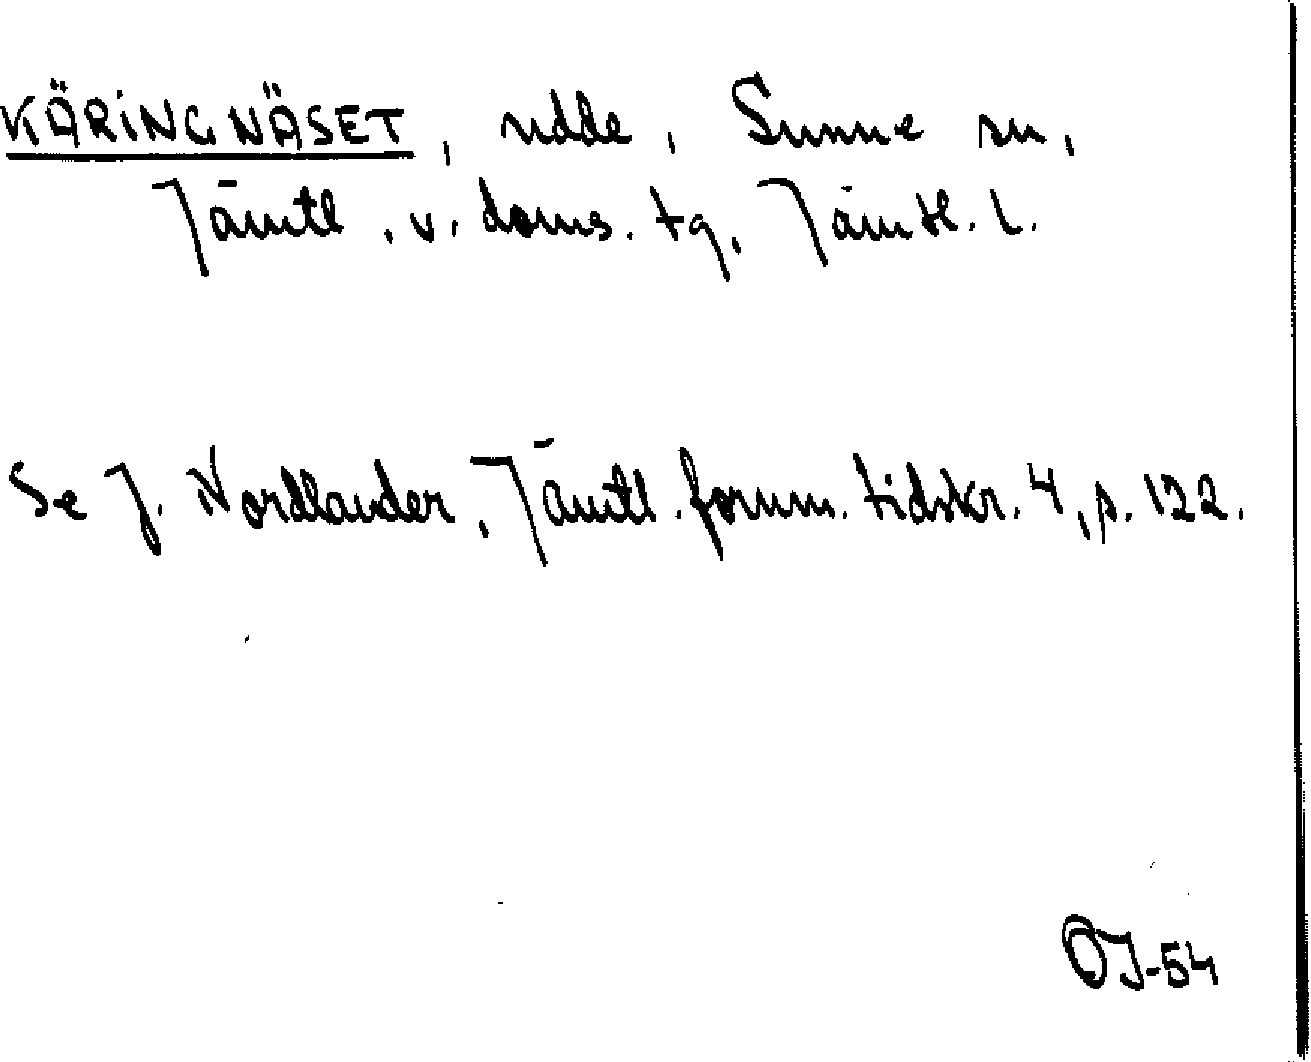 KÄRINGNÄSET, udde, Sunne sn,
Jämtl. v. doms. tg, Jämtl. l.
Se J. Nordlander, Jämtl. fornm. tidskr. 4, p. 122.
OJ-54